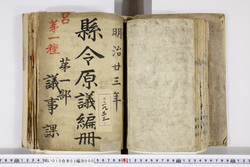 明治廿三年
縣令原議編冊
第一部
議事課
第一種